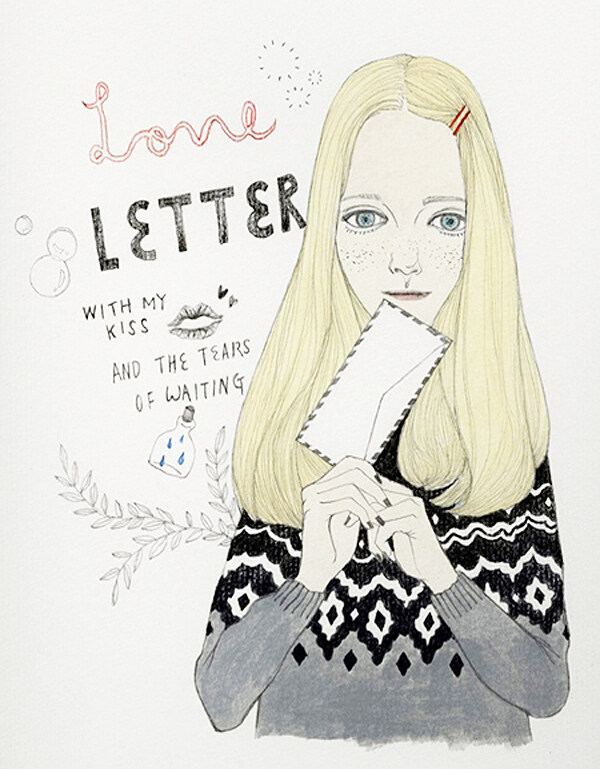 Love
LETTER
WITH MY
KISS
AND THE TEARS
OF WAITING